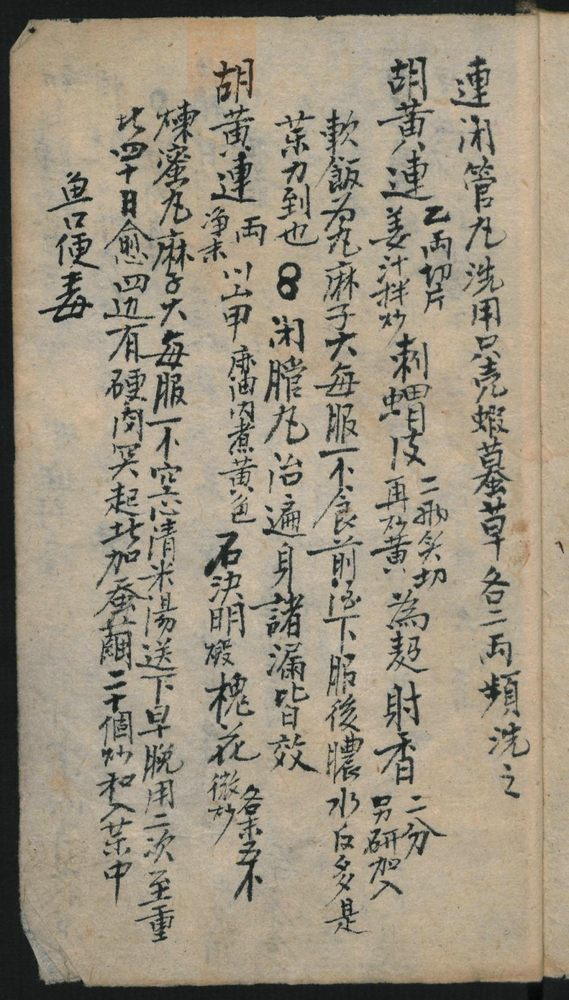 連閉管丸洗用只壳蝦蟇草各二両頻洗之
胡黄連乙両切片姜汁拌炒刺蝟皮二両炙切再炒黄為麪射香二分另研加入
軟飯为丸麻子大每服一不食前酒下服後膿水反多是
藥力到也 8 閉膛丸治遍身諸漏皆效
胡黄連両净末川山甲麻油内煮黄色石決明煅槐花微炒各末五不
煉蜜丸麻子大每服一不空心清米湯送下早晚用二次至重
此四十日愈四边有硬肉突起此加蚕繭二十個炒和入藥中
鱼口便毒